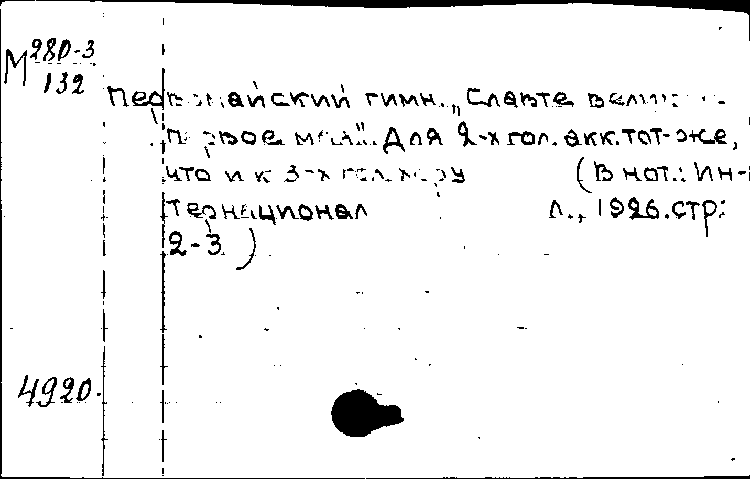 М 280-3
132
Первомайский гимн. „Славте великое
первое мая". Для 2-х гол. акк. тот-же,
что и к 3-х гол. хору (В нот.: Ин-
тернационал Л., 1926. стр:
2-3)
4920.